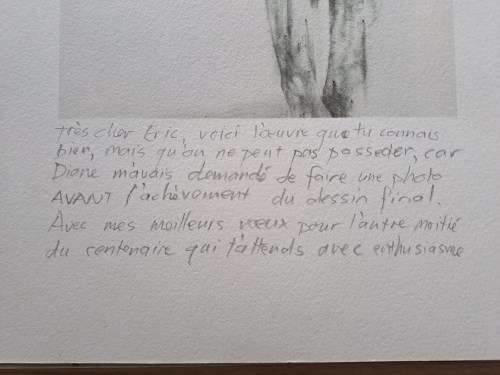 très cher Eric, voici l'œuvre que tu connais
bien, mais qu'on ne peut pas posseder, car
Diane m'avais demandé de faire une photo
AVANT l'achèvement du dessin final.
Avec mes meilleurs vœux pour l'autre moitié
du centenaire qui t'attends avec enthusiasme